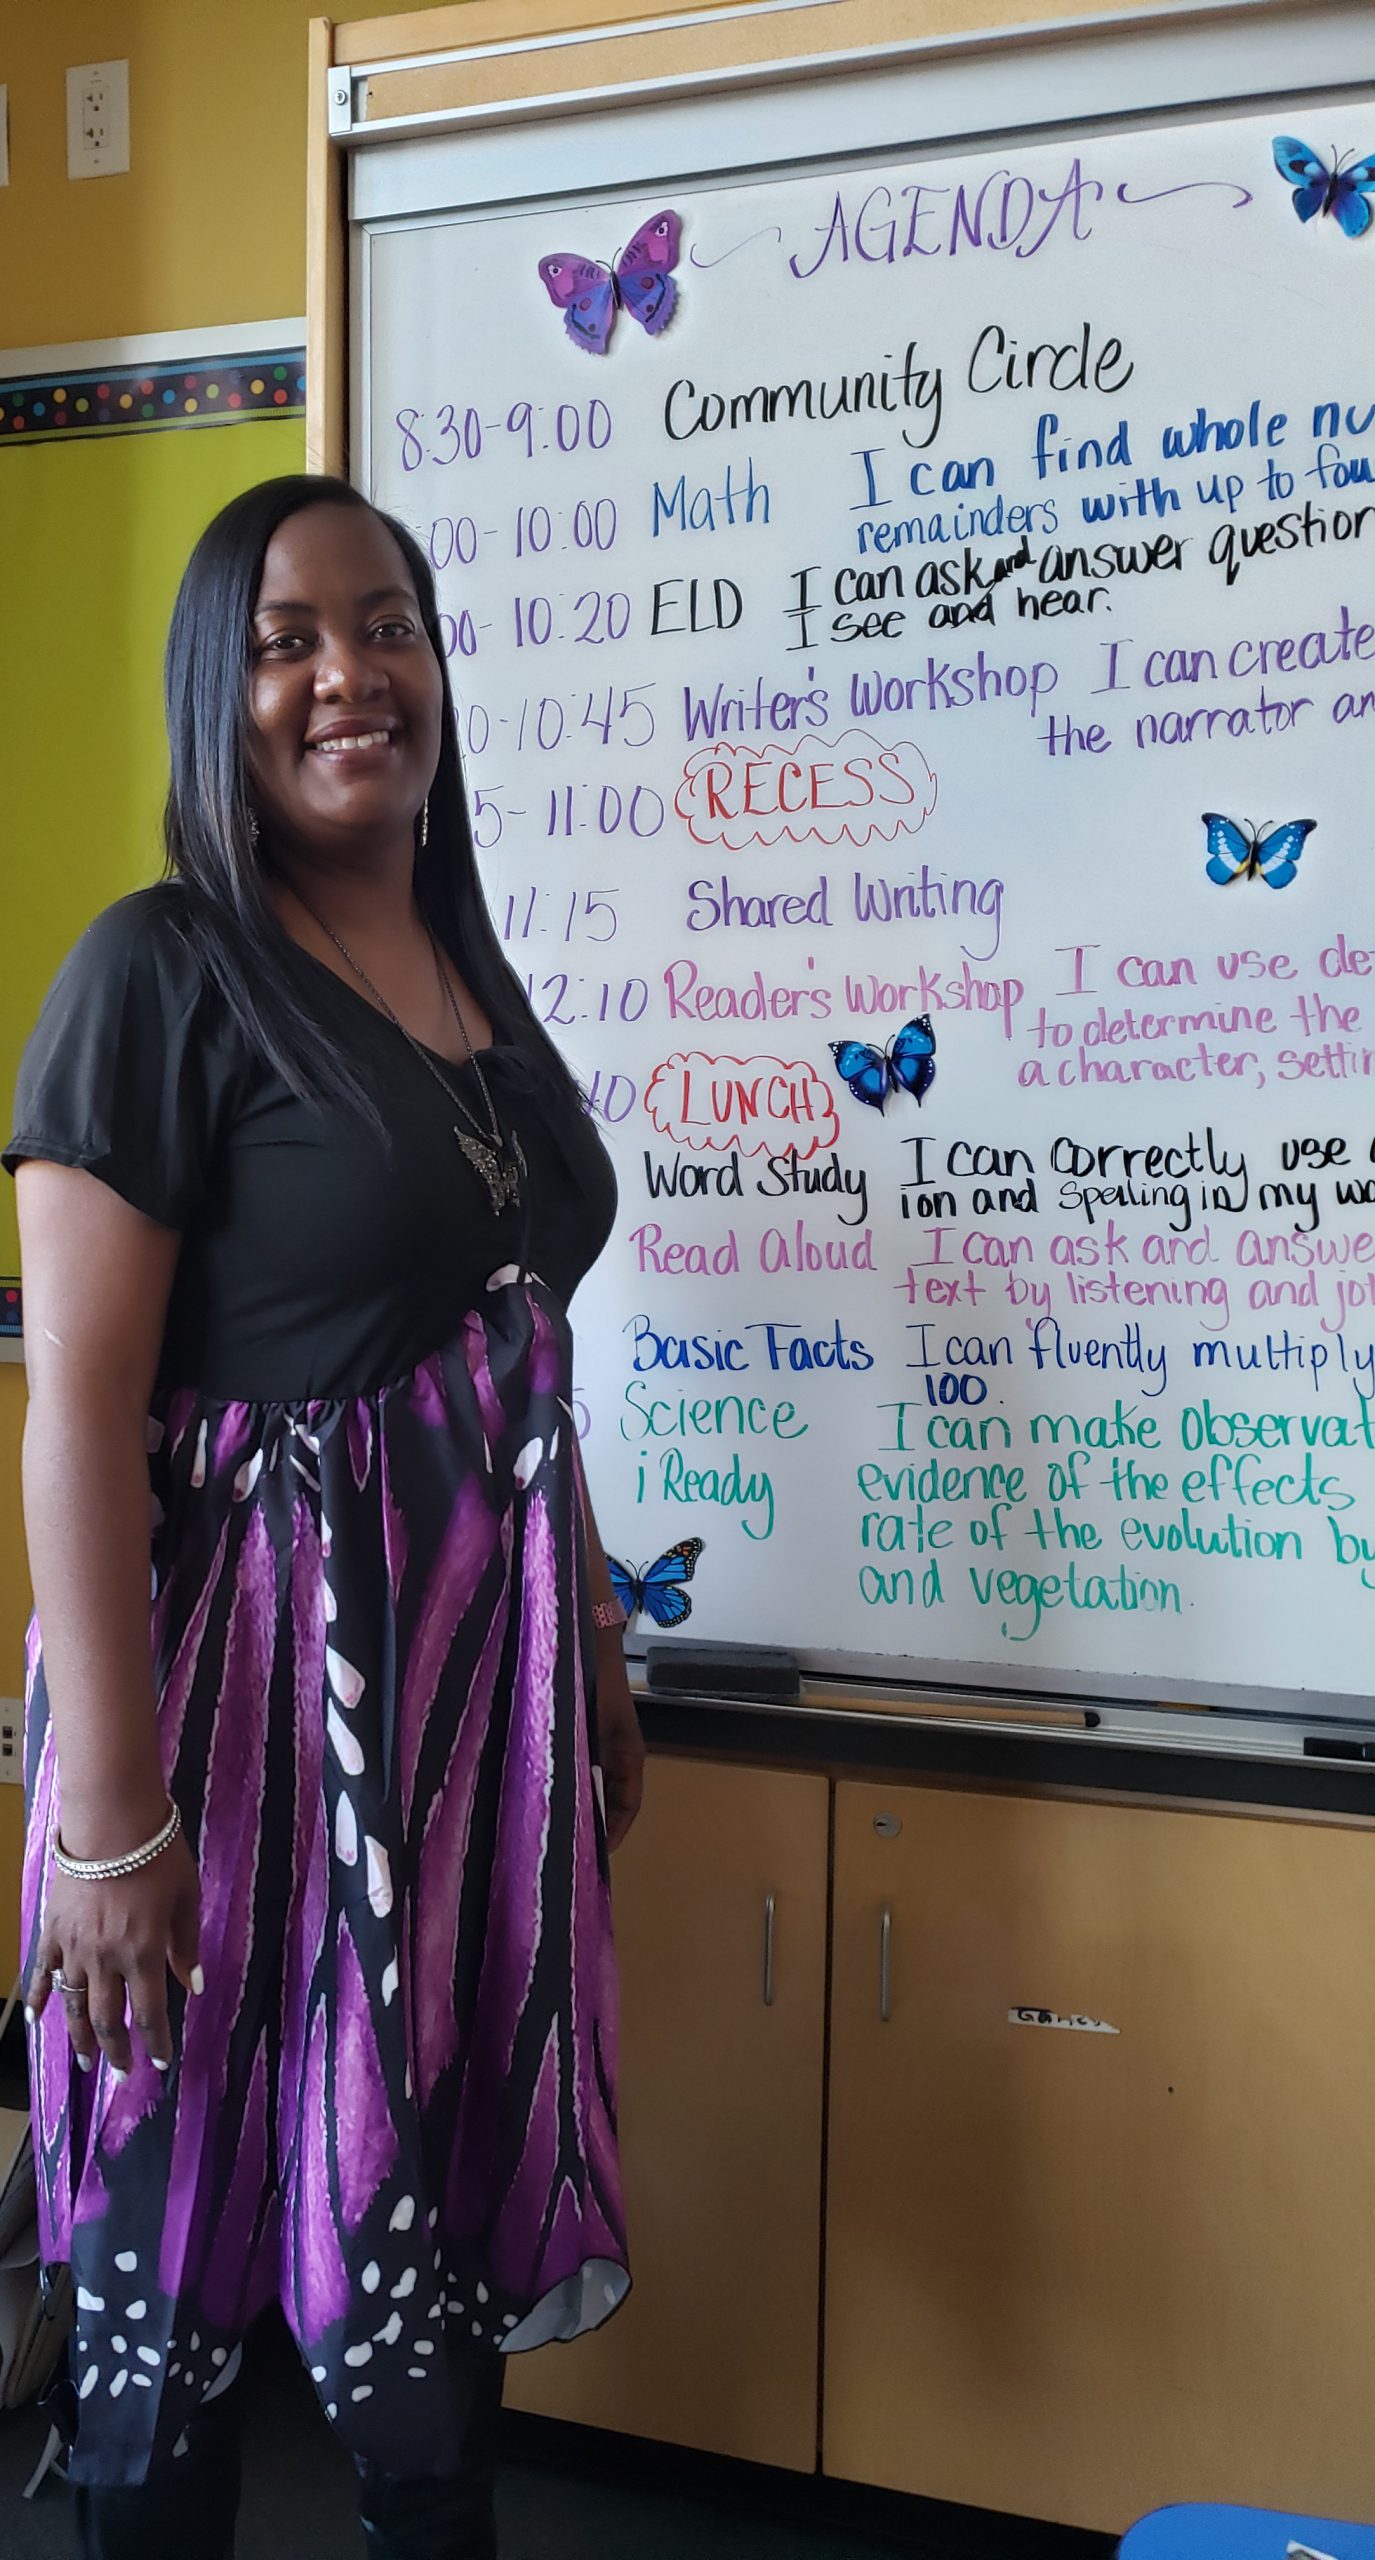 AGENDA
8:30-9:00 Community Circle
00-10:00 Math I can find whole nu
remainders with up to fou
00-10:20 ELD I can ask and answer question
I see and hear.
0-10:45 Writer's Workshop I can create
the narrator an
5-11:00 RECESS
11:15 Shared Writing
12:10 Reader's Workshop I can use de
to determine the
a character, settin
10 LUNCH
Word Study I can correctly use
ion and spelling in my wo
Read Aloud I can ask and answe
text by listening and jot
Basic Facts I can fluently multiply
100.
5 Science I can make observat
i Ready evidence of the effects
rate of the evolution by
and vegetation.
Games